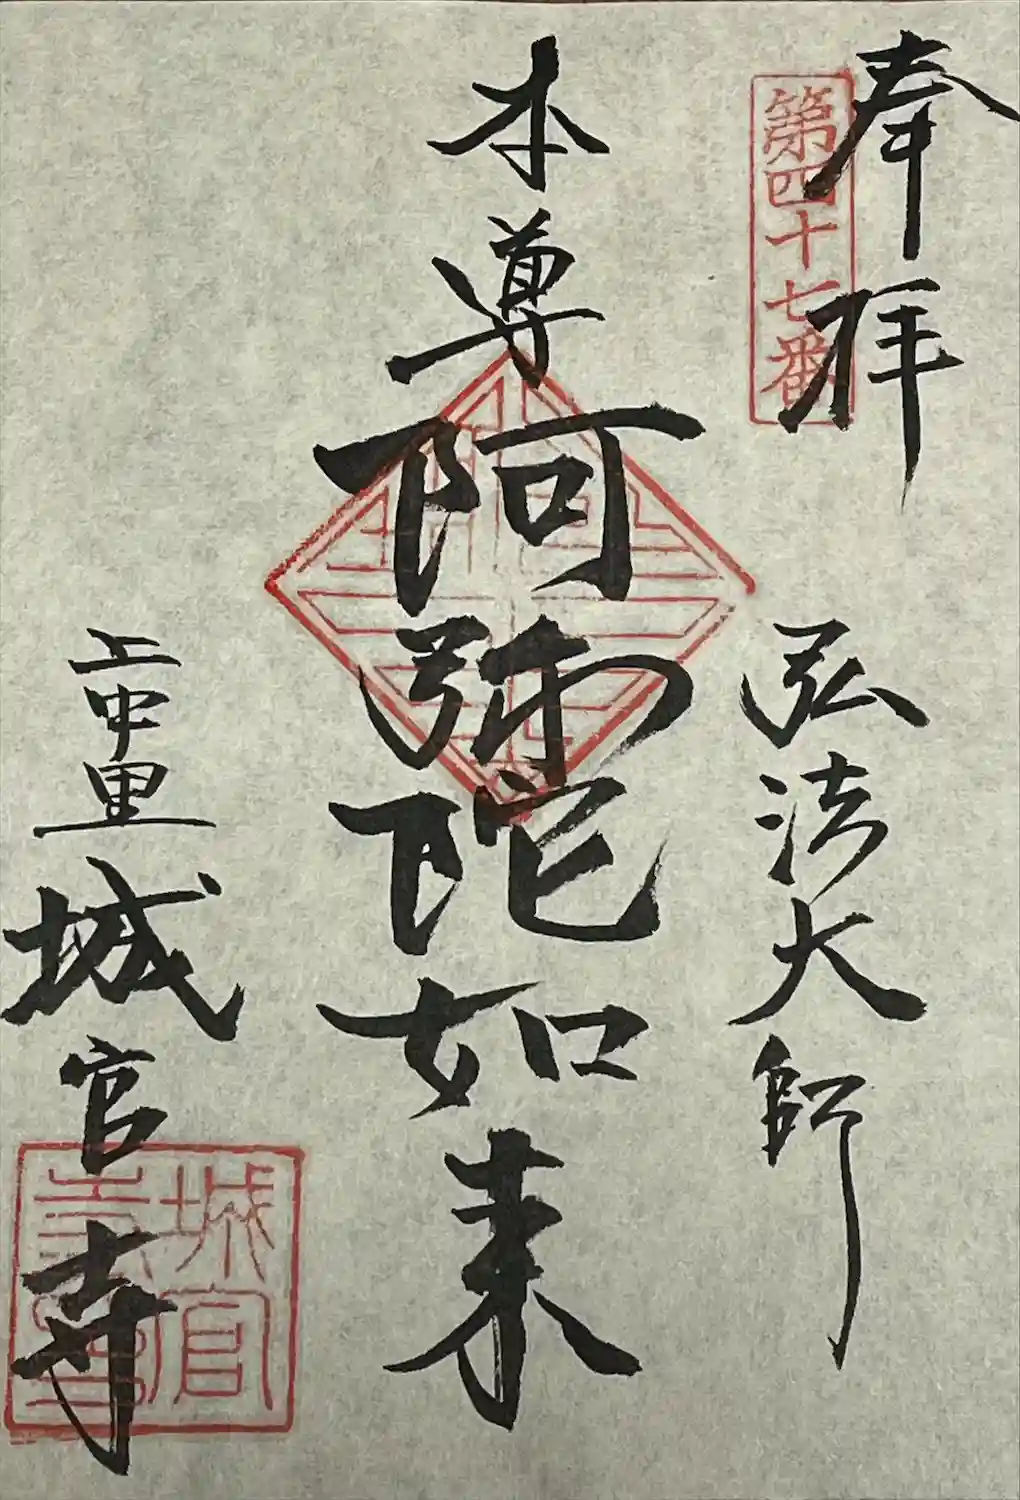 奉拝
第四十七番
弘法大師
本尊
阿弥陀如来
上中里
城官寺
城官
寺